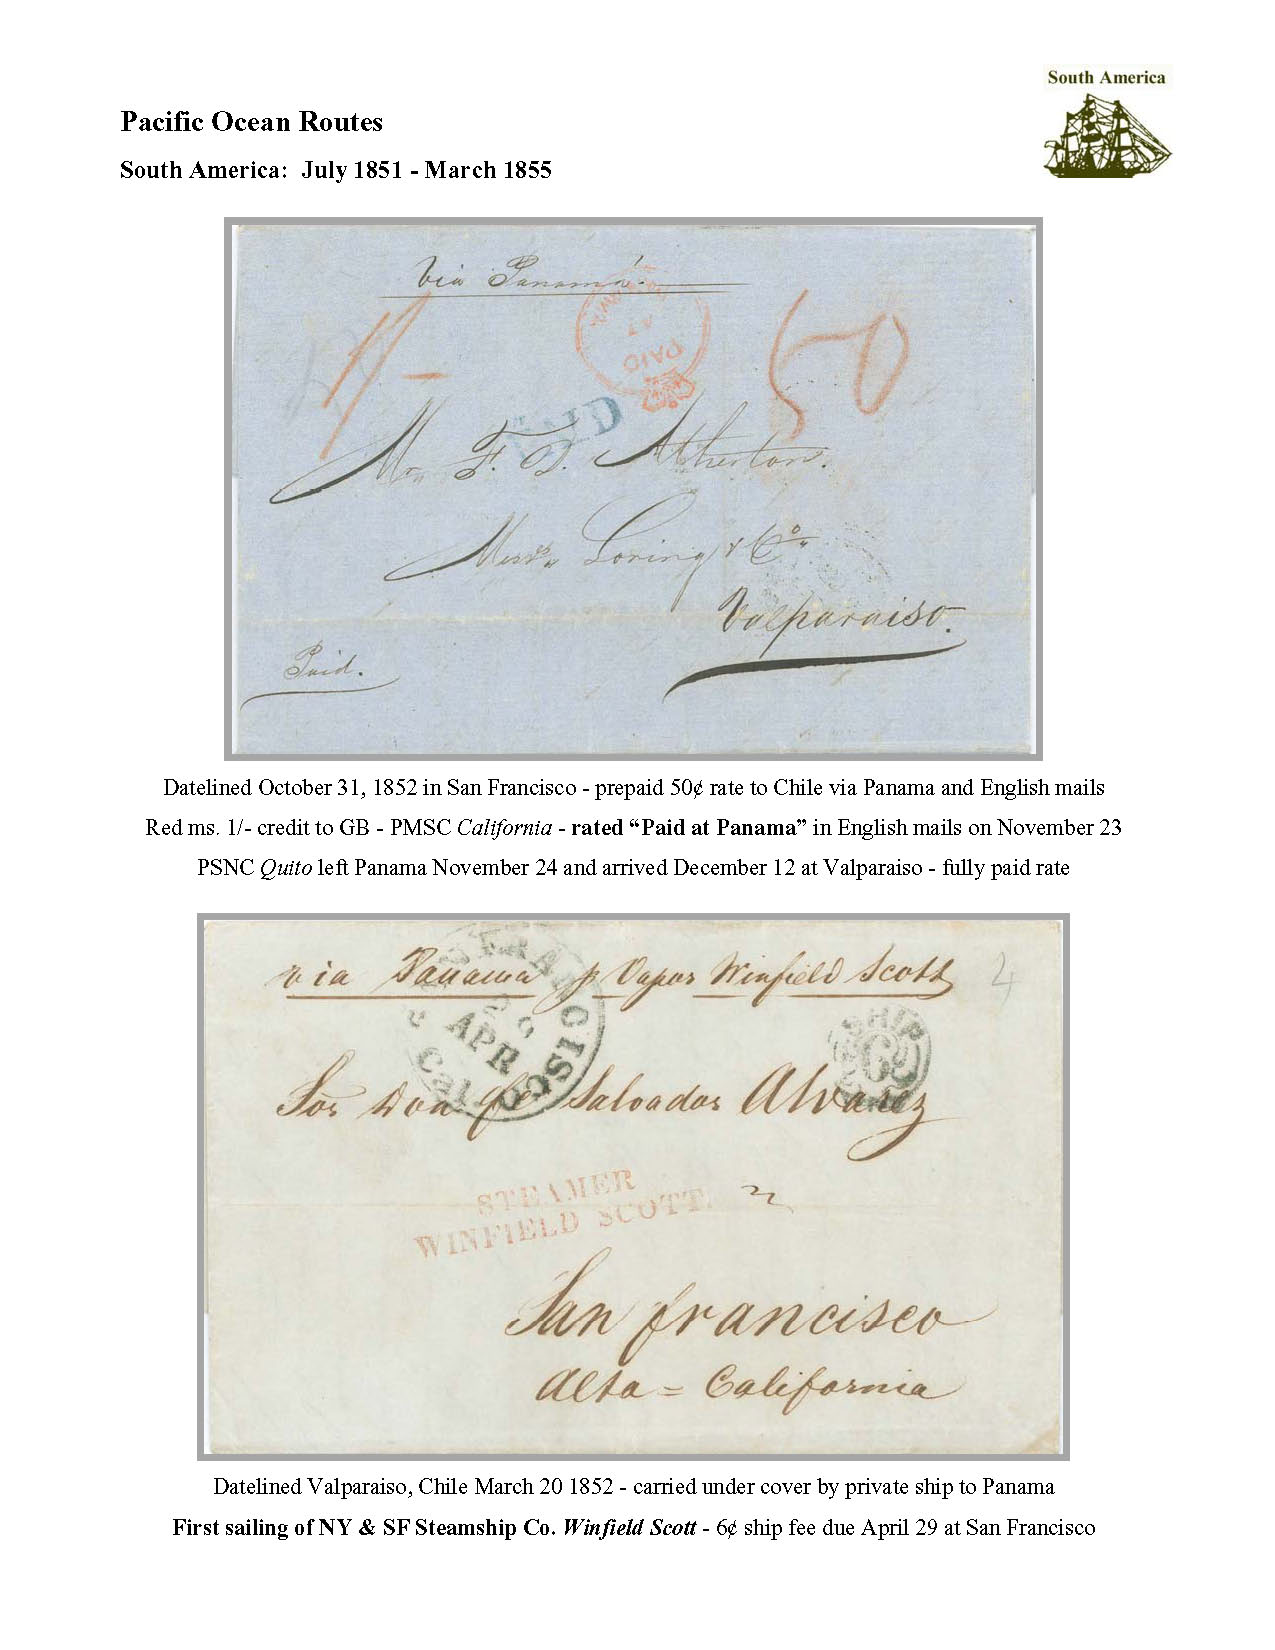 South America
Pacific Ocean Routes
South America: July 1851 - March 1855
Via Panamá.
PAID
1/-
50
PAID
Mr. F. D. Atherton.
Messrs. Loring & Co.
Valparaiso.
Paid.
Datelined October 31, 1852 in San Francisco - prepaid 50¢ rate to Chile via Panama and English mails
Red ms. 1/- credit to GB - PMSC California - rated “Paid at Panama” in English mails on November 23
PSNC Quito left Panama November 24 and arrived December 12 at Valparaiso - fully paid rate
via Panama p Vapor Winfield Scott
4
SAN FRANCISCO
APR
Cal.
SHIP
6
Sor Don Je Salvador Alvarez
STEAMER
WINFIELD SCOTT.
San francisco
Alta = California
Datelined Valparaiso, Chile March 20 1852 - carried under cover by private ship to Panama
First sailing of NY & SF Steamship Co. Winfield Scott - 6¢ ship fee due April 29 at San Francisco